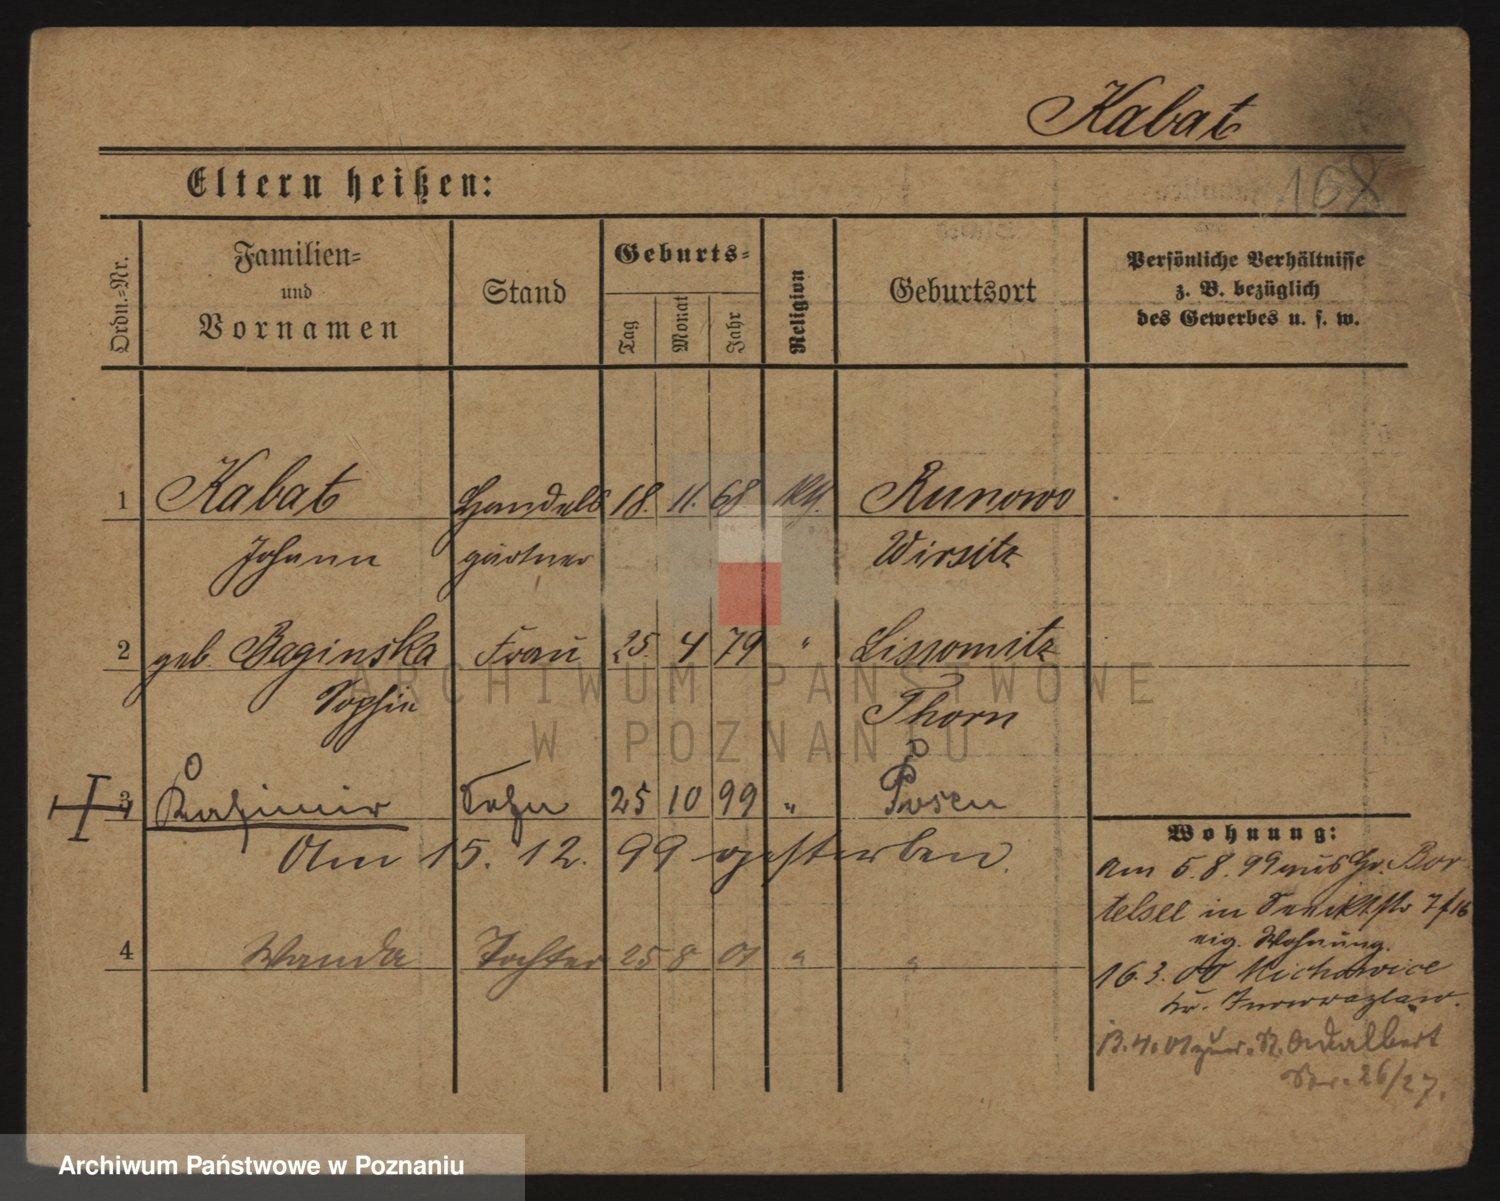 Kabat
168
Eltern heißen:
Ordn.=Nr.
Familien=
und
Vornamen
Stand
Geburts=
Tag
Monat
Jahr
Religion
Geburtsort
Persönliche Verhältnisse
z. B. bezüglich
des Gewerbes u. s. w.
1 Kabat Handels 18. 11. 68 kth. Runowo
Johann gärtner Wirsitz
2 geb. Baginska Frau 25. 4 79 " Lissomitz
Sophie Thorn
3 Kasimir Sohn 25 10 99 " Posen
Am 15. 12. 99 gestorben.
4 Wanda Tochter 25 8 01 " "
Wohnung:
Am 5. 8. 99 aus Gr. Bor
telsee in 7/16
eig. Wohnung.
16. 3. 00 Michowice
Kr. Inowrazlaw.
13. 4. 01 zur. St. Adalbert
Str. 26/27.
ARCHIWUM PAŃSTWOWE
W POZNANIU
Archiwum Państwowe w Poznaniu